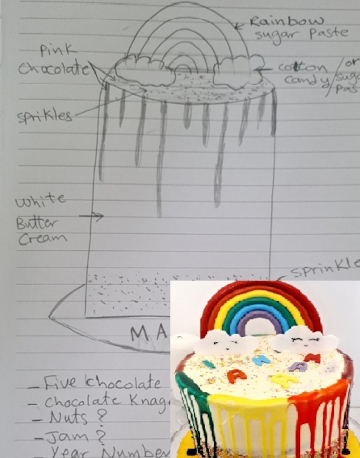 Rainbow
sugar Paste
Pink
Chocolate
cotton /or
candy/sug
Pas
sprikles
White
Butter
Cream
sprinkle
MA
- Five chocolate
- Chocolate Knag
- Nuts ?
- Jam ?
- Year Number